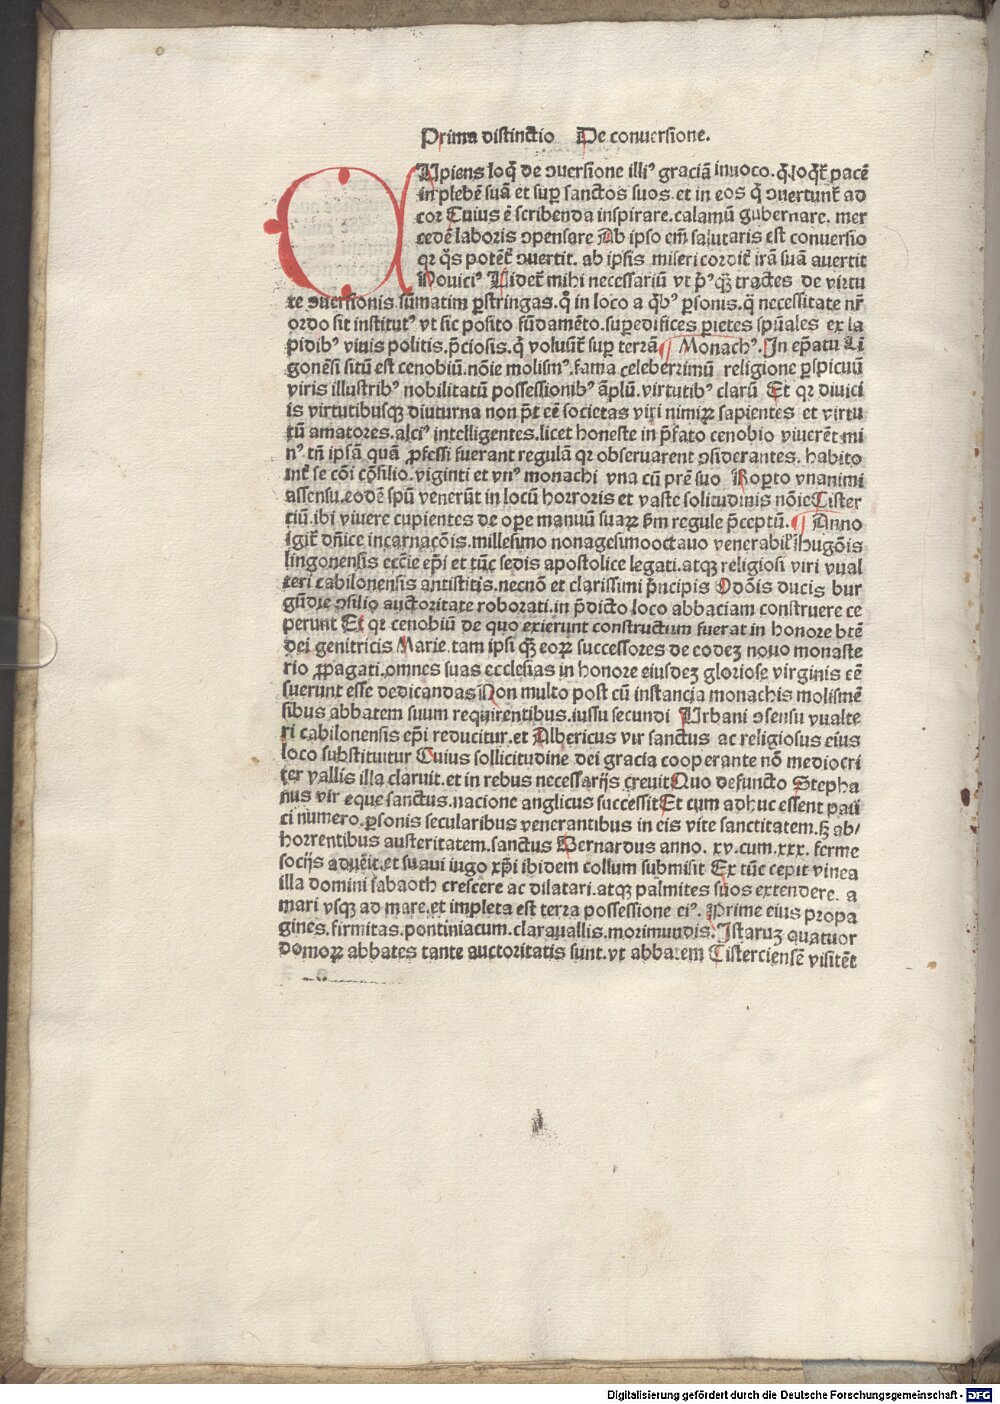 Prima distinctio De conuersione.
CUpiens loq̄ de ɔuersione illiꝰ graciā inuoco. q̄ loqͭ pacē
in plebē suā et suꝑ sanctos suos. et in eos q̄ ɔuertunt̄ ad
cor Cuius ē scribenda inspirare. calamū gubernare. mer
cedē laboris ɔpensare Ab ipso em̄ salutaris est conuersio
qꝛ q̄s potēt̄ ɔuertit. ab ipsis misericordit̄ irā suā auertit
Nouiciꝰ Uidet̄ mihi necessariū vt p̄ꝰ qꝫ tractes de virtu
te ɔuersionis sūmatim ꝑstringas. q̄ in loco a qͥbꝰ ꝑsonis. q̄ necessitate nr̄
ordo sit institutꝰ vt sic posito fūdamēto. suꝑedifices ꝑietes spūales ex la
pidibꝰ viuis politis. p̄ciosis. q̄ voluūt̄ suꝑ terrā Monachꝰ. In ep̄atu Li
gonēsi sitū est cenobiū. nōie molismꝰ. fama celeberrimū religione ꝑspicuū
viris illustribꝰ nobilitatū possessionibꝰ āplū. virtutibꝰ clarū Et qꝛ diuici
is virtutibusqꝫ diuturna non p̄t eē societas viri nimiꝝ sapientes et virtu
tū amatores. alciꝰ intelligentes. licet honeste in p̄fato cenobio viuerēt mi
nꝰ tn̄ ipsā quā ꝓfessi fuerant regulā qꝛ obseruarent ɔsiderantes. habito
int̄ se cōi cōsilio. viginti et vnꝰ monachi vna cū pr̄e suo Roꝑto vnanimi
assensu. eodē spū venerūt in locū horroris et vaste solitudinis nōie Cister
ciū. ibi viuere cupientes de oꝑe manuū suaꝝ ꝑm regule p̄ceptū. Anno
igit̄ dn̄ice incarnacōis. millesimo nonagesimooctauo venerabil̓ ihugōis
lingonensis ecc̄ie ep̄i et tūc sedis apostolice legati. atqꝫ religiosi viri vual
teri cabilonensis antistitis. necnō et clarissimi p̄ncipis Odōis ducis bur
gūdie ɔsilio auctoritate roborati. in p̄dicto loco abbaciam construere ce
perunt Et qꝛ cenobiū de quo exierunt constructum fuerat in honore btē
dei genitricis Marie. tam ipsi qꝫ eoꝝ successores de eodeꝫ nouo monaste
rio ꝓpagati. omnes suas ecclesias in honore eiusdeꝫ gloriose virginis cē
suerunt esse dedicandas Non multo post cū instancia monachis molismē
sibus abbatem suum requirentibus. iussu secundi Urbani ɔsensu vualte
ri cabilonensis ep̄i reducitur. et Albericus vir sanctus ac religiosus eius
loco substituitur Cuius sollicitudine dei gracia cooperante nō mediocri
ter vallis illa claruit. et in rebus necessarijs creuit Quo defuncto Stepha
nus vir eque sanctus. nacione anglicus successit Et cum adhuc essent pau
ci numero. ꝑsonis secularibus venerantibus in eis vite sanctitatem. sꝫ ab/
horrentibus austeritatem. sanctus Bernardus anno. xv. cum. xxx. ferme
socijs aduēit. et suaui iugo xp̄i ibidem collum submisit Ex tūc cepit vinea
illa domini sabaoth crescere ac dilatari. atqꝫ palmites suos extendere. a
mari vsqꝫ ad mare. et impleta est terra possessione eiꝰ. Prime eius propa
gines. firmitas. pontiniacum. clarauallis. morimundis. Istaruꝫ quatuor
domoꝝ abbates tante auctoritatis sunt. vt abbatem Cisterciensē visitēt
Digitalisierung gefördert durch die Deutsche Forschungsgemeinschaft - DFG